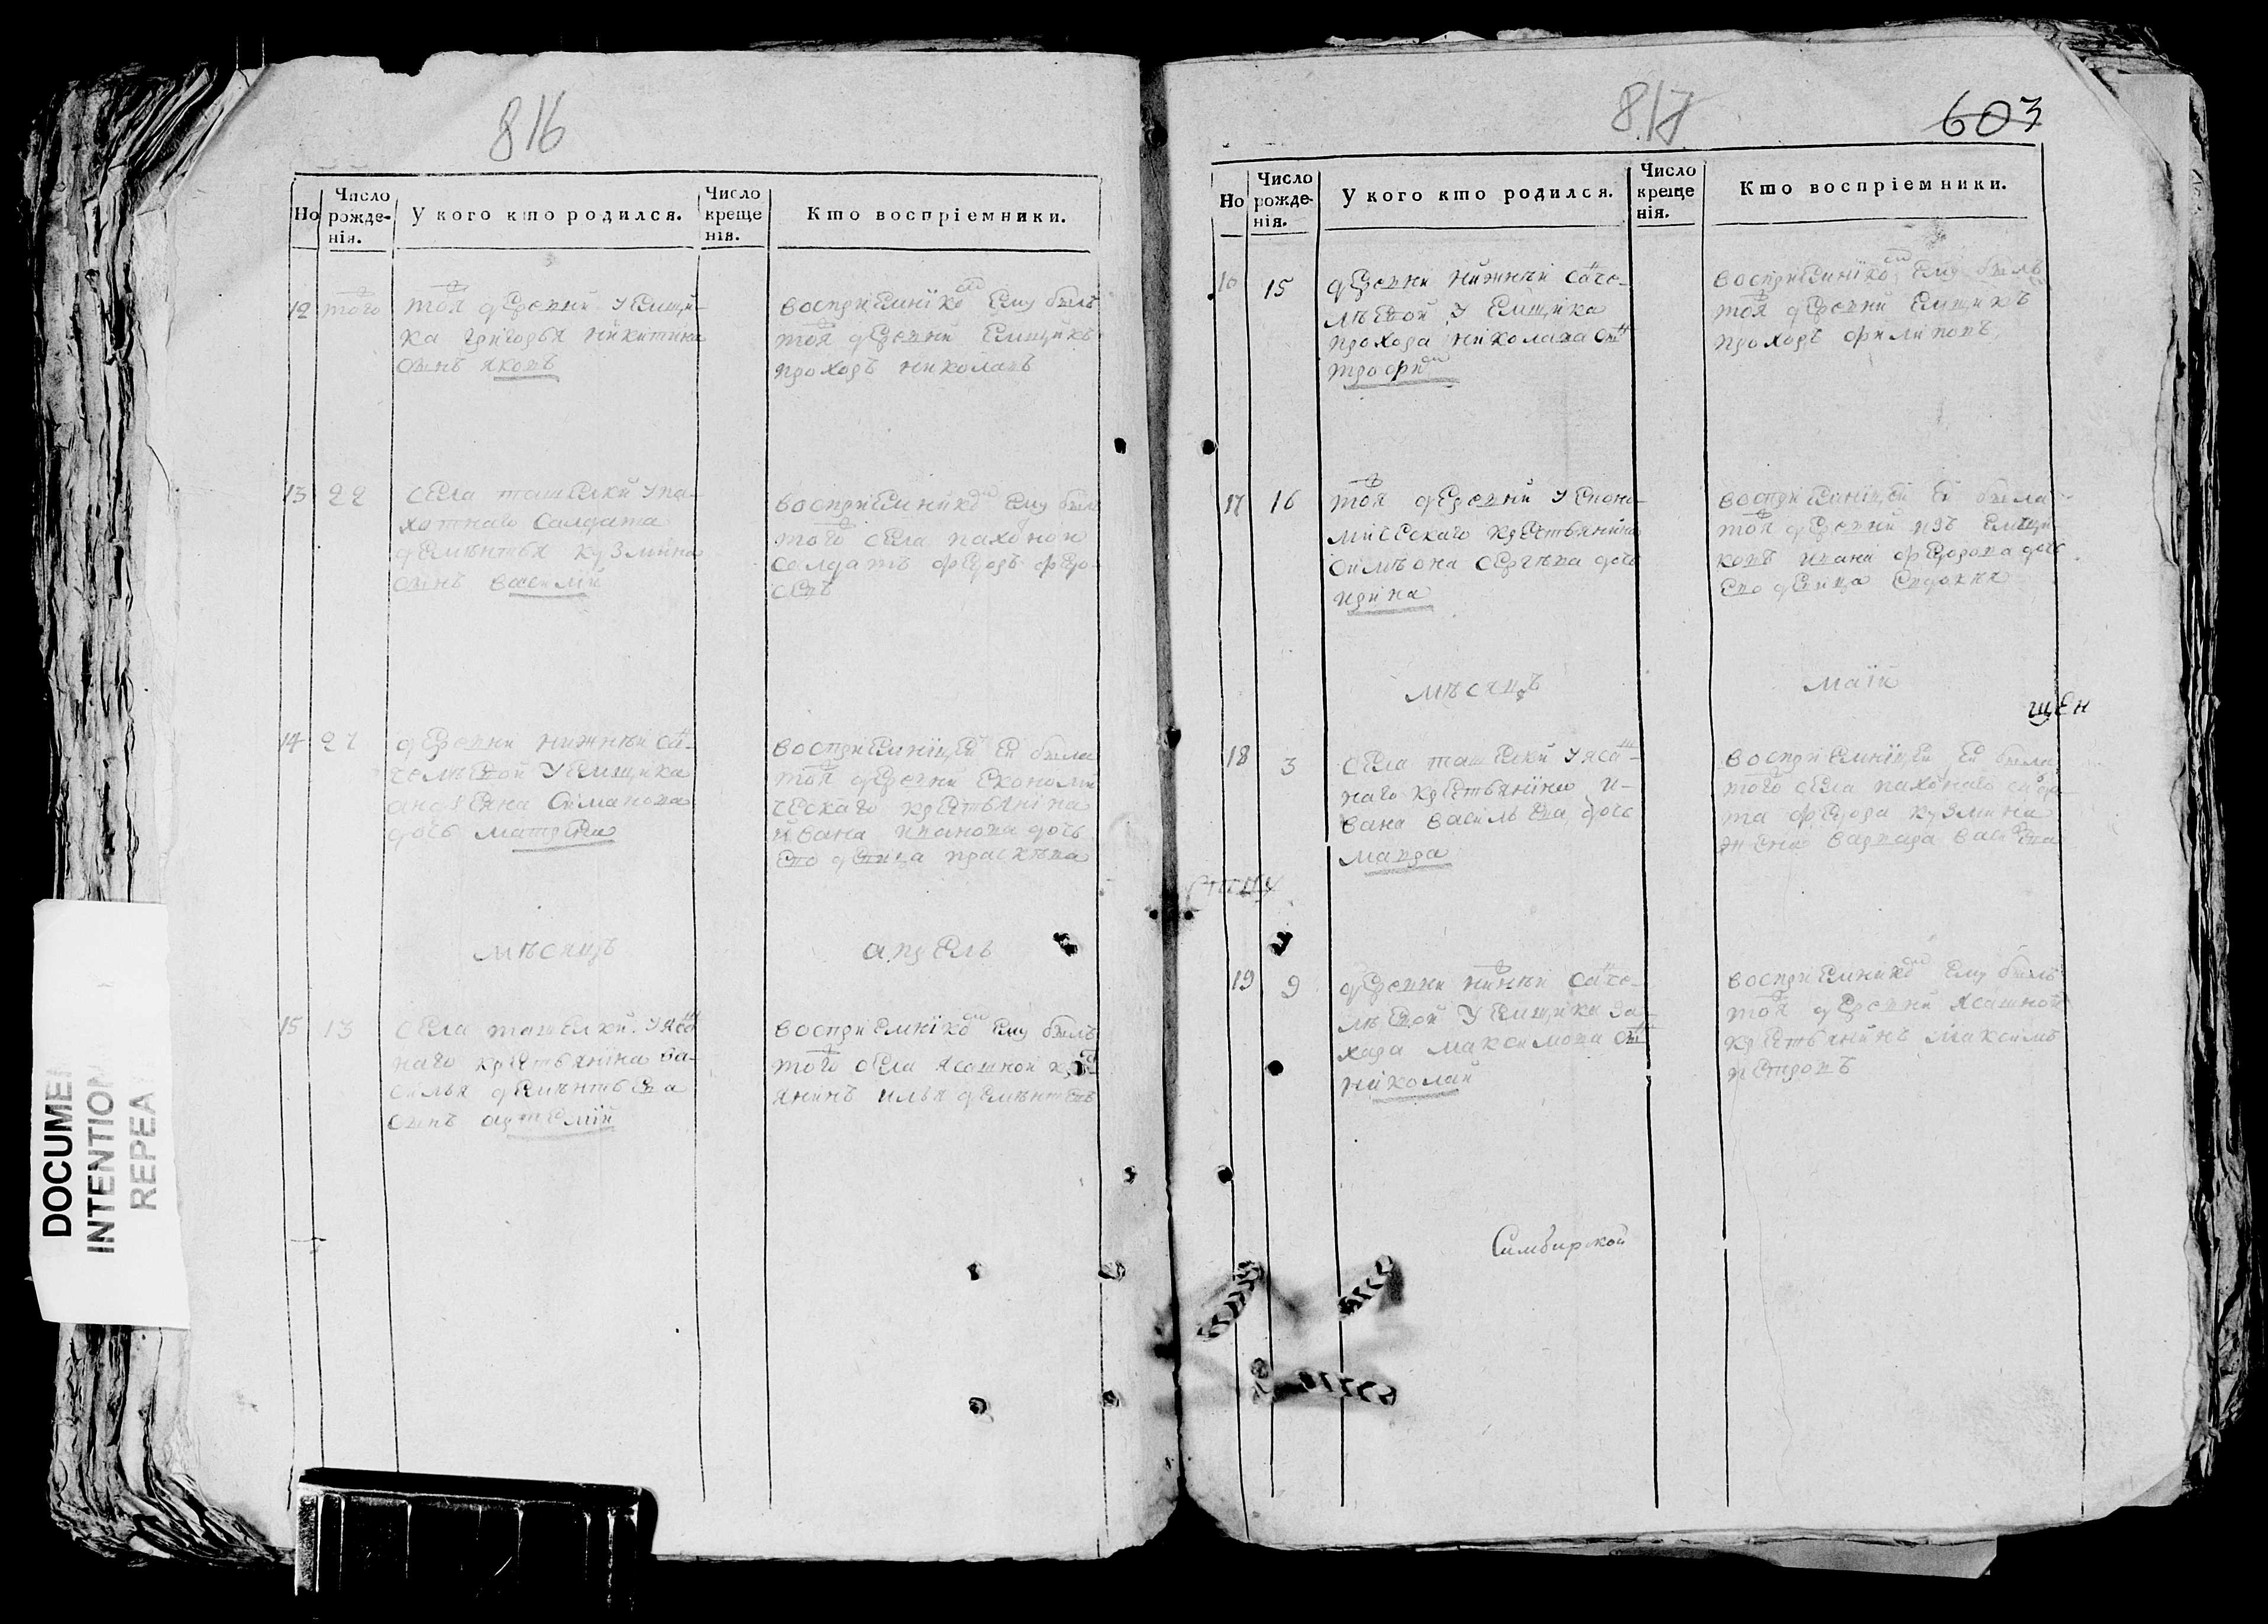 816
Но
Число рожде- нія.
У кого кто родился.
Число креще нія.
Кто воспріемники.
12 того
тоя деревни у емщи-
ка григорья никитина
сынъ яковъ
восприемнікомъ ему былъ
тоя деревни емщикъ
прохоръ николаевъ
13 22
села ташелки у па-
хотнаго салдата
дементья кузмина
сынъ василій
восприемникомъ ему былъ
того села пахоной
салдатъ федоръ федо-
сеевъ
14 27
деревни нижней сан-
челеевой у емщика
андреяна симанова
дочь матрена
восприемніцей ей была
тоя деревни економи
ческаго крестьяніна
ивана иванова дочь
ево девица прасковья
мѣсяцъ
апрель
15 13
села ташелки у ясаш
наго крестьянина ва-
силья дементьева
сынъ артемій
восприемнікомъ ему былъ
того села ясашной крес
янинъ илья дементьевъ
817
603
Но
Число рожде- нія.
У кого кто родился.
Число креще нія.
Кто воспріемники.
16 15
деревни нижней санче-
леевой у емщика
прохора николаева сынъ
трофимъ
восприемнікомъ ему былъ
тоя деревни емщикъ
прохоръ филиповъ
17 16
тоя деревни у еконо-
мическаго крестьянина
симеона сергеева дочь
ирина
восприемніцей ей была
тоя деревни изъ емщи-
ковъ ивана федорова дочь
ево девица евдокея
мѣсяцъ
маій
щен
18 3
села ташелки у ясаш-
наго крестьяніна и-
вана васильева дочь
мавра
восприемніцей ей была
того села пахонаго салда-
та федора кузмина
жена варвара васильева
19 9
деревни нижней санче-
леевой у емщика за-
хара максимова сынъ
николай
восприемникомъ ему былъ
тоя деревни ясашной
крестьянинъ максимъ
петровъ
Симбирской
DOCUMEN
INTENTION
REPEA